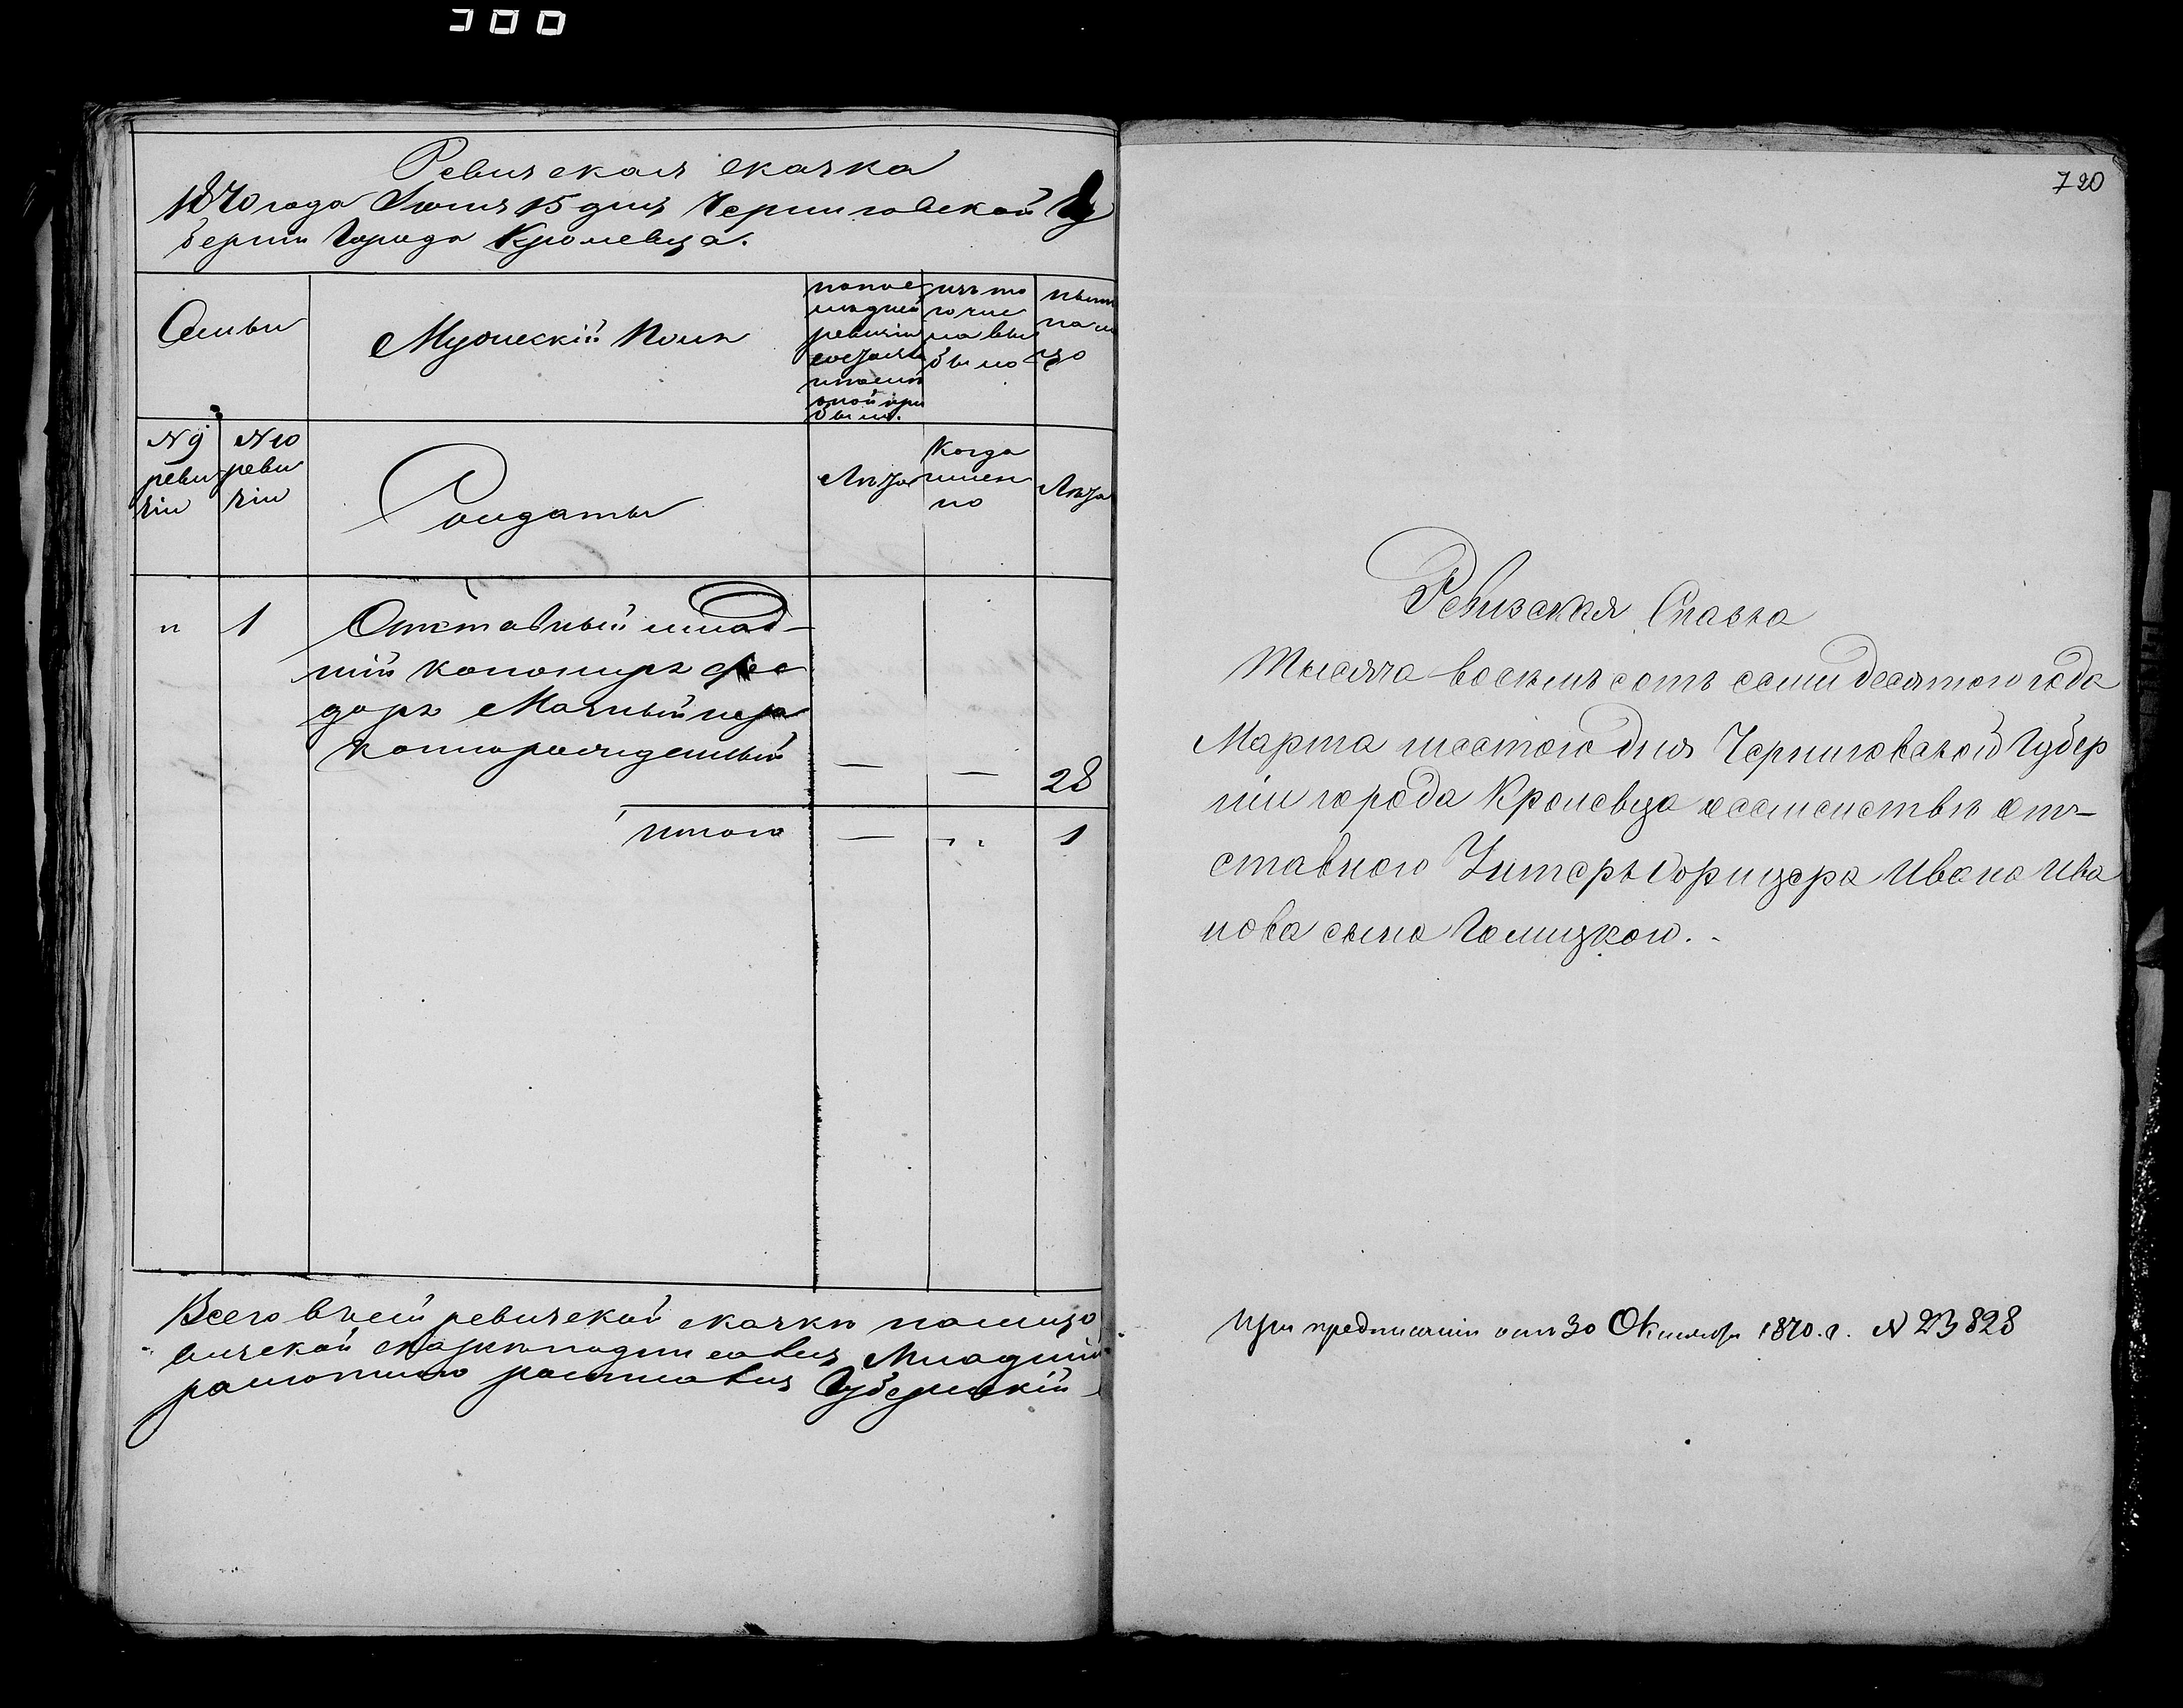 300
Ревизская сказка
1870 года Июня 15 дня Черниговской Гу
берніи Города Кролевца.
Семьи
Мужескій Полъ
по последней ревизіи состояло и после оной прибыло.
изъ то
го чис
ла вы
было
ныне
на ли
цо
№ 9
реви
зіи
№ 10
реви
зіи
Солдаты
Лета
Когда
имен
но
Лета
" 1
Отставный млад-
шій канониръ Фео
доръ Мазный
— — 28
итого — " 1
Всего въ сей ревизской сказки на лицо
Младшій
росписался Губернскій
720
Ревизская Сказка
Тысяча восемь сотъ семидесятого года
Марта шестого дня Черниговской Губер
ніи города Кролевца о семействѣ от-
ставного Унтеръ Офицера Ивана Ива
нова сына Галицкого.
При предписаніи отъ 30 Октября 1870. г. № 23828